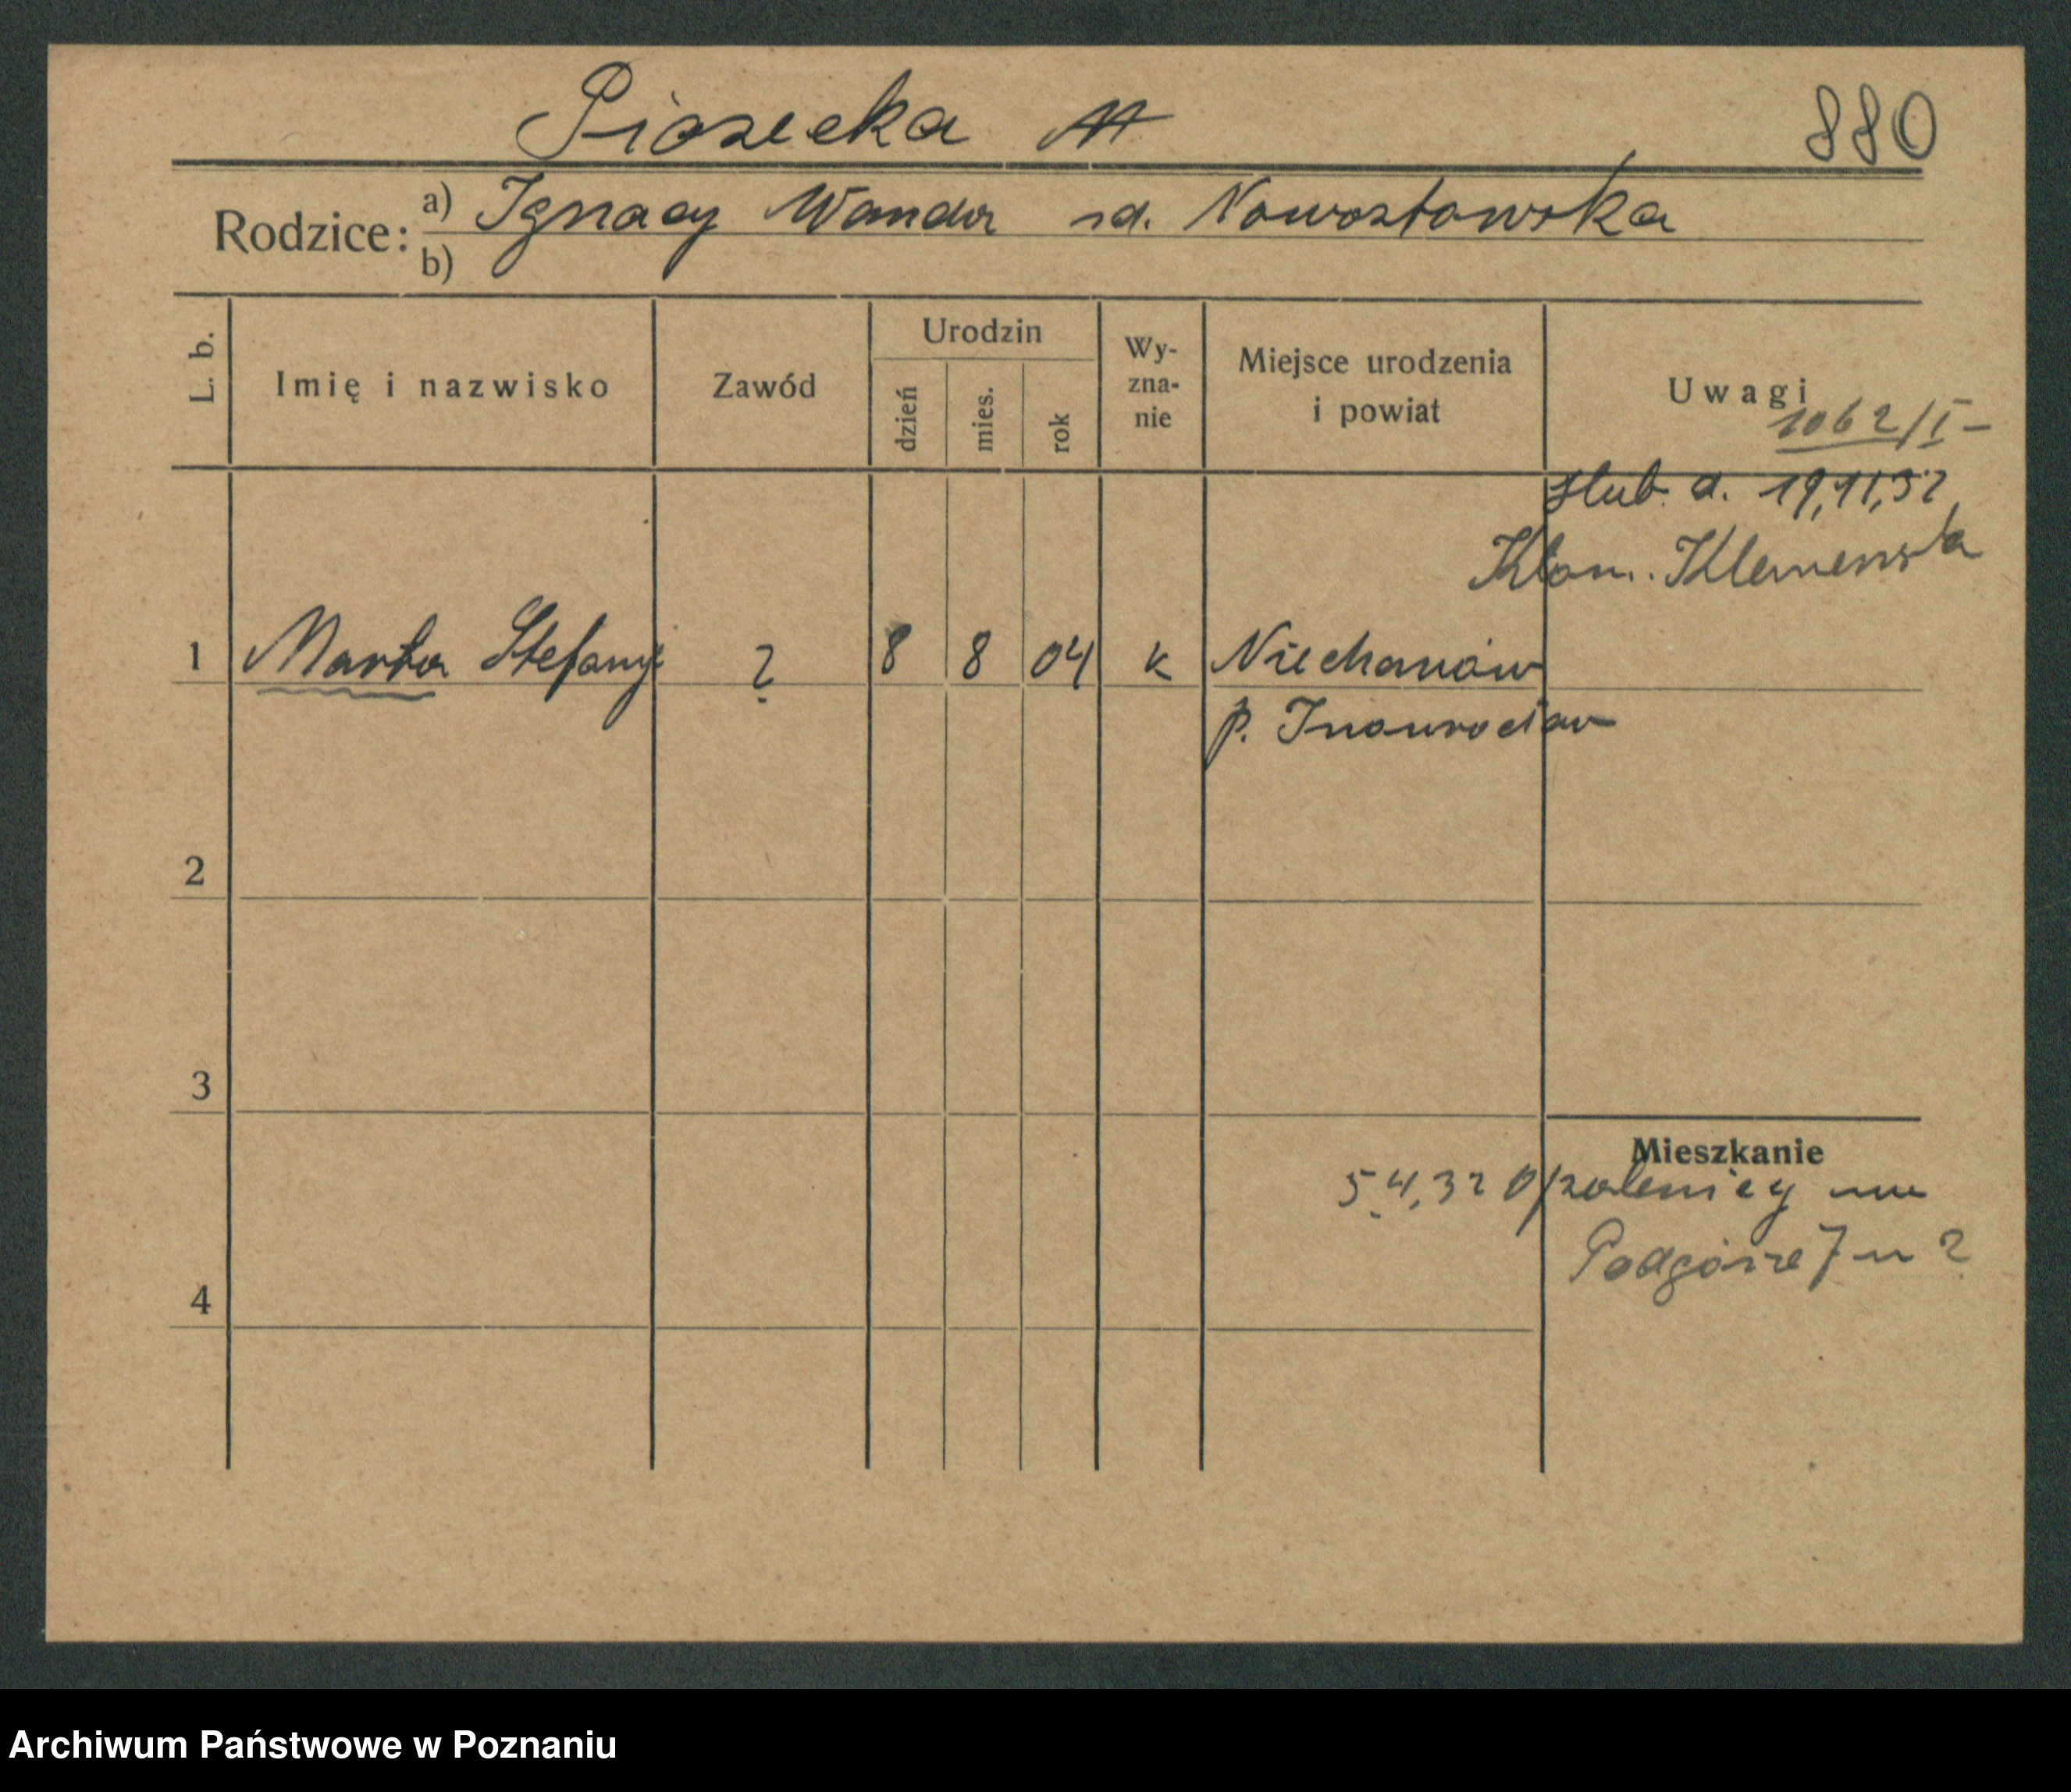 Piasecka M
880
Rodzice: a) Ignacy Wanda zd. Nowostawska
b)
L. b.
Imię i nazwisko
Zawód
Urodzin
dzień
mies.
rok
Wy-
zna-
nie
Miejsce urodzenia
i powiat
Uwagi
1062/I-
ślub. d. 19,11,32
Klemenska
1 Marta Stefanja ? 8 8 04 k Niechanów
p. Inowrocław
2
3
Mieszkanie
5.4.32 Opalenicy
Podgórze 7 m 2
4
Archiwum Państwowe w Poznaniu